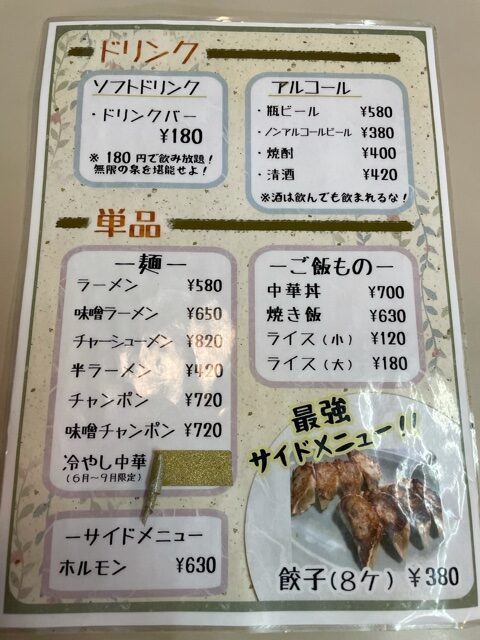 ドリンク
ソフトドリンク
・ドリンクバー
¥180
※ 180 円で飲み放題!
無限の泉を堪能せよ!
アルコール
・瓶ビール ¥580
・ノンアルコールビール ¥380
・焼酎 ¥400
・清酒 ¥420
※酒は飲んでも飲まれるな!
単品
ー麺ー
ラーメン ¥580
味噌ラーメン ¥650
チャーシューメン ¥820
半ラーメン ¥420
チャンポン ¥720
味噌チャンポン ¥720
冷やし中華
(6月~9月限定)
ーご飯ものー
中華丼 ¥700
焼き飯 ¥630
ライス(小) ¥120
ライス(大) ¥180
最強
サイドメニュー!!
餃子(8ケ) ¥380
ーサイドメニュー
ホルモン ¥630